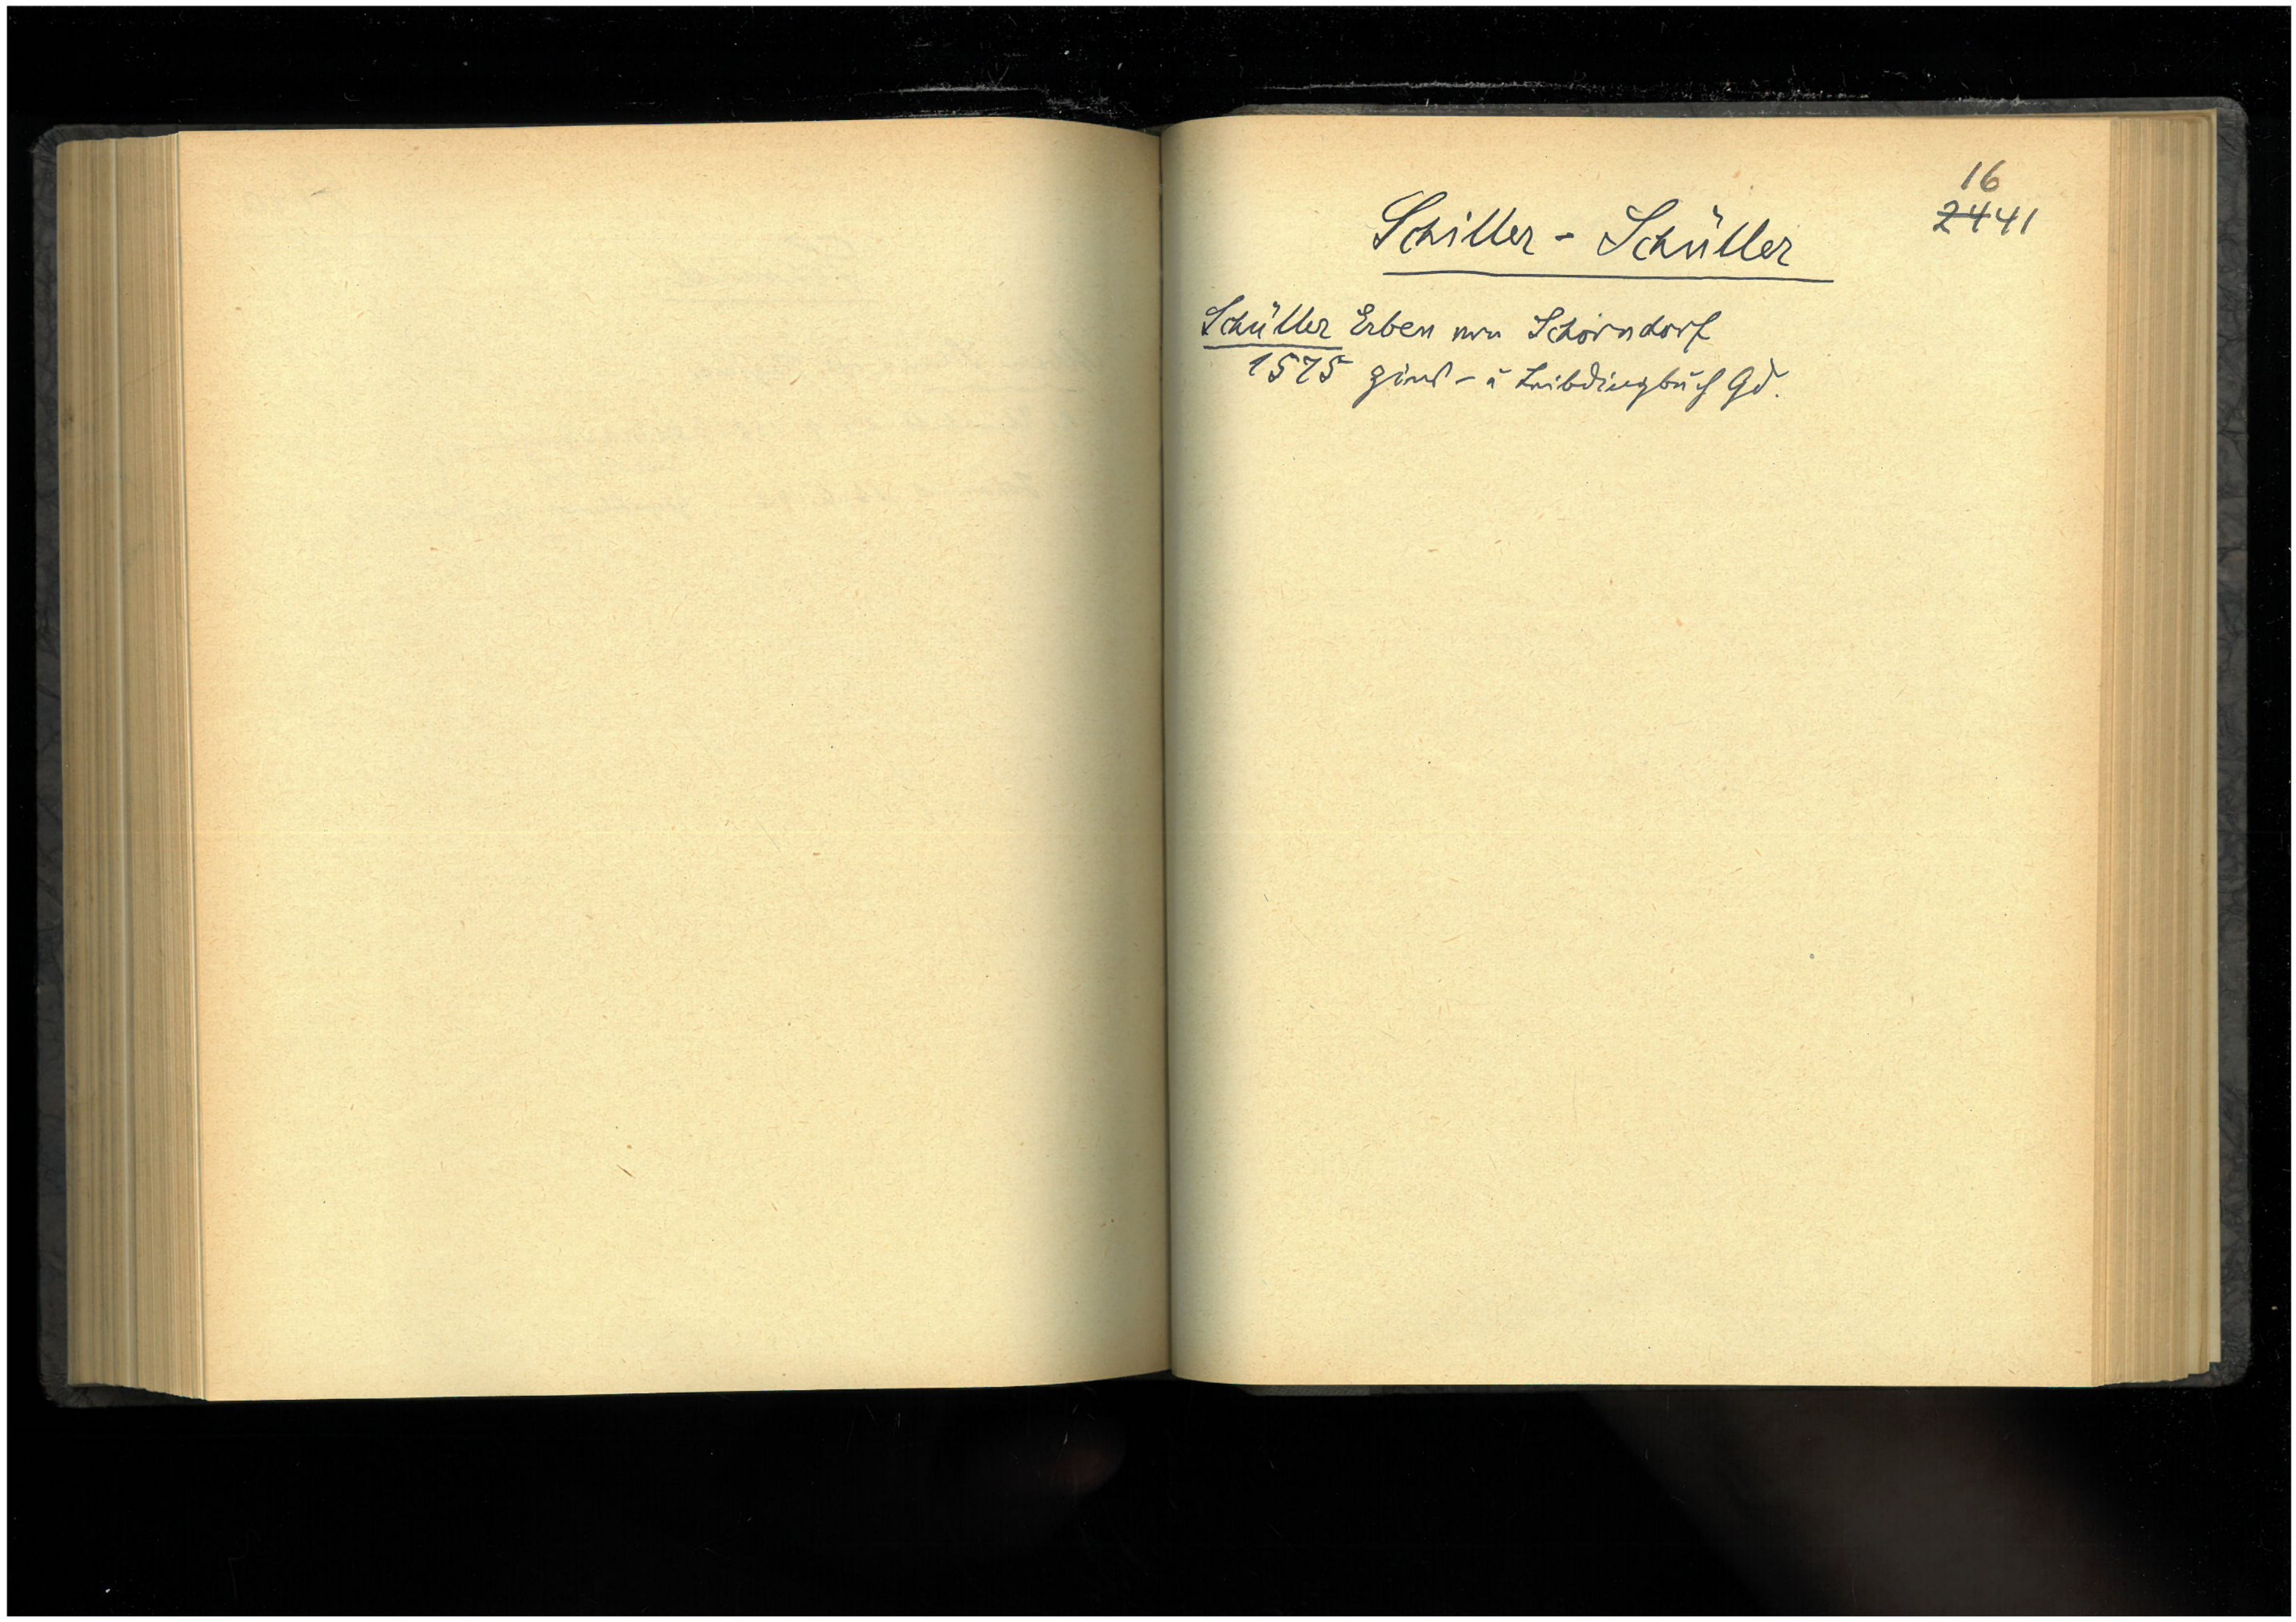 16
2441
Schiller - Schüller
Schüller Erben von Schorndorf
1575 Zins- u Leibdingbuch Gd.